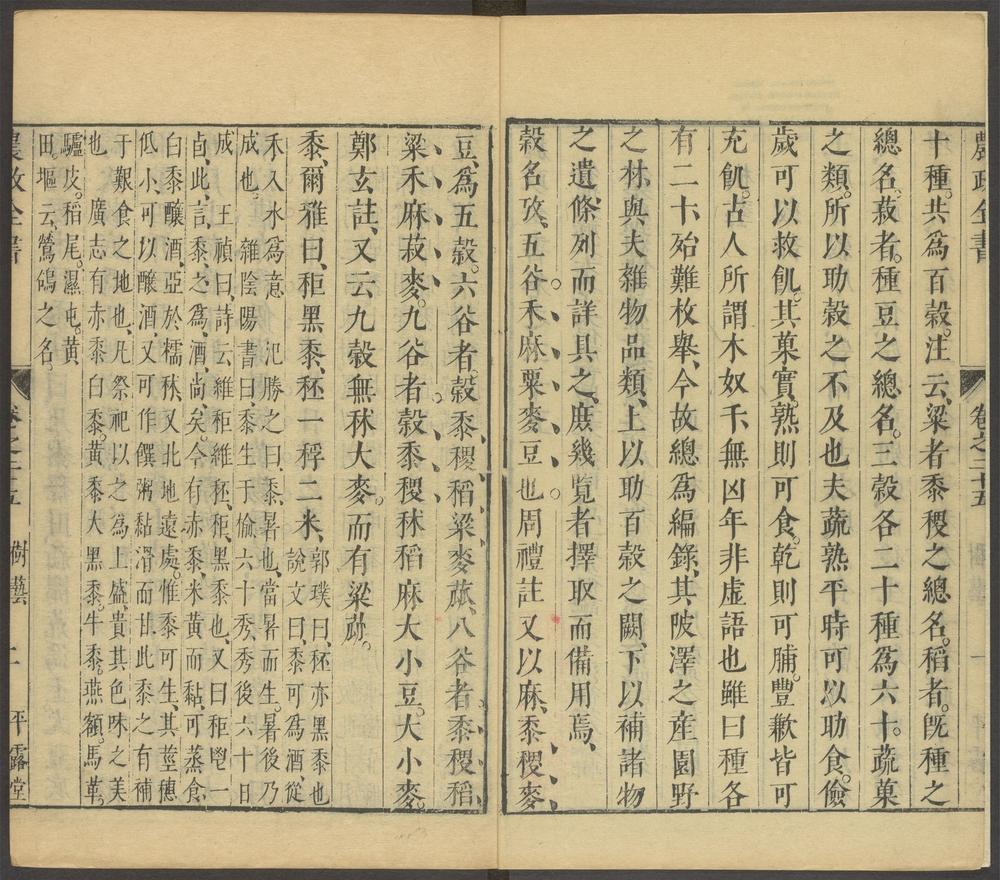 農政全書 卷之二十五
十種。共爲百穀。注云、粱者黍稷之總名。稻者。旣種之
總名。菽者。種豆之總名。三穀各二十種爲六十。蔬菓
之類。所以助穀之不及也夫蔬熟平時可以助食。儉
歲可以救飢。其菓實。熟則可食。乾則可脯。豐歉皆可
充飢。古人所謂木奴千、無凶年非虛語也雖曰種各
有二十、殆難枚舉、今故總爲編錄、其陂澤之產園野
之材、與夫雜物品類、上以助百穀之闕、下以補諸物
之遺、條列而詳具之、庶幾覽者擇取而備用焉、
穀名攷、五谷禾麻粟麥豆也。周禮註又以麻、黍稷麥
豆、爲五穀。六谷者。穀、黍稷稻粱麥苽、八谷者黍稷稻
粱禾麻菽麥。九谷者穀黍稷秫稻麻大小豆。大小麥。
鄭玄註、又云九穀無秫大麥。而有粱苽。
黍、爾雅曰、秬黑黍、秠一稃二米、郭璞曰、秠亦黑黍也
說文曰、黍可爲酒、從
禾入水爲意 氾勝之曰、黍暑也、當暑而生。暑後乃
成也。 雜陰陽書曰黍生于楡六十秀、秀後六十日
成 王禎曰、詩云維秬維秠、秬、黑黍也、又曰秬鬯一
卣、此言黍之爲酒、尚矣。今有赤黍、米黃而黏、可蒸食、
白黍釀酒、亞於糯秫、又北地遠處。惟黍可生、其莖穗
低小、可以釀酒、又可作饌粥黏滑而甘、此黍之有補
于艱食之地也、凡祭祀以之爲上盛、貴其色味之美
也 廣志有赤黍白黍。黃黍大黑黍。牛黍。燕頷。馬革。
驢皮。稻尾。濕屯。黃
田。堰云、鶯鴿之名
農政全書 卷之二十五 樹藝 二 平露堂